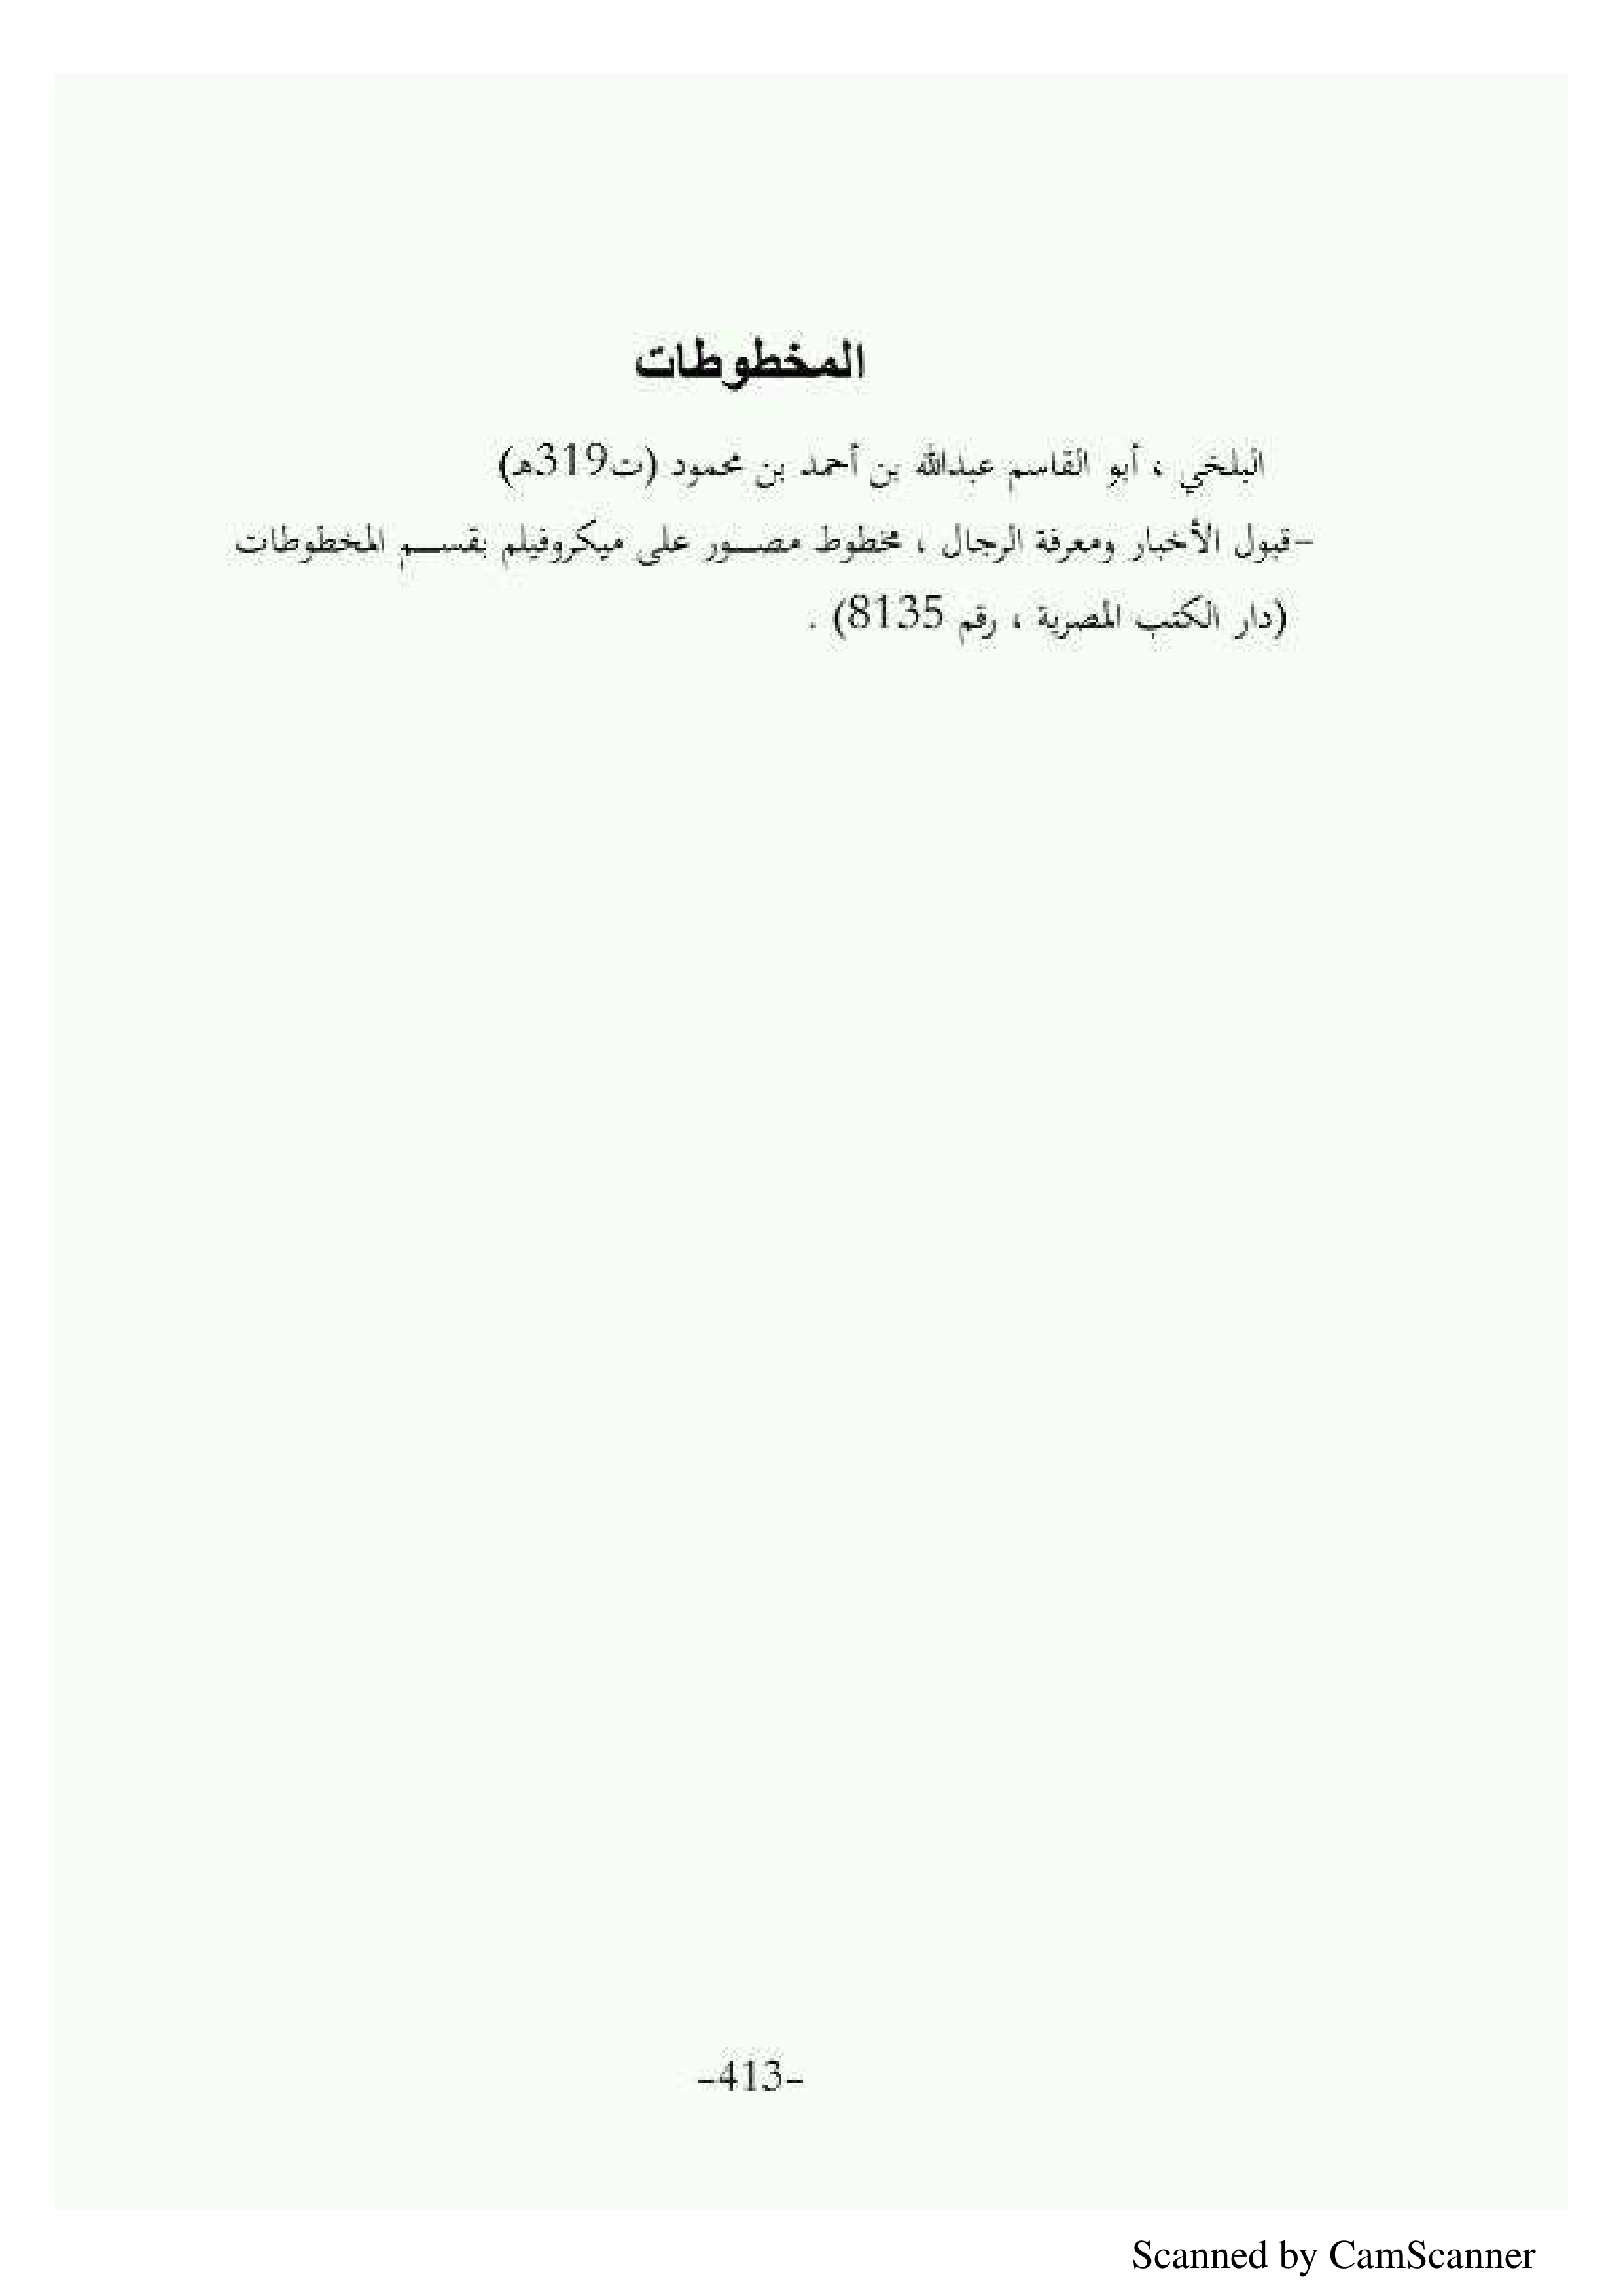 المخطوطات
البلخي ، أبو القاسم عبدالله بن أحمد بن محمود (ت319هـ)
-قبول الأخبار ومعرفة الرجال ، مخطوط مصـــور على ميكروفيلم بقســـم المخطوطات
(دار الكتب المصرية ، رقم 8135) .
-413-
Scanned by CamScanner